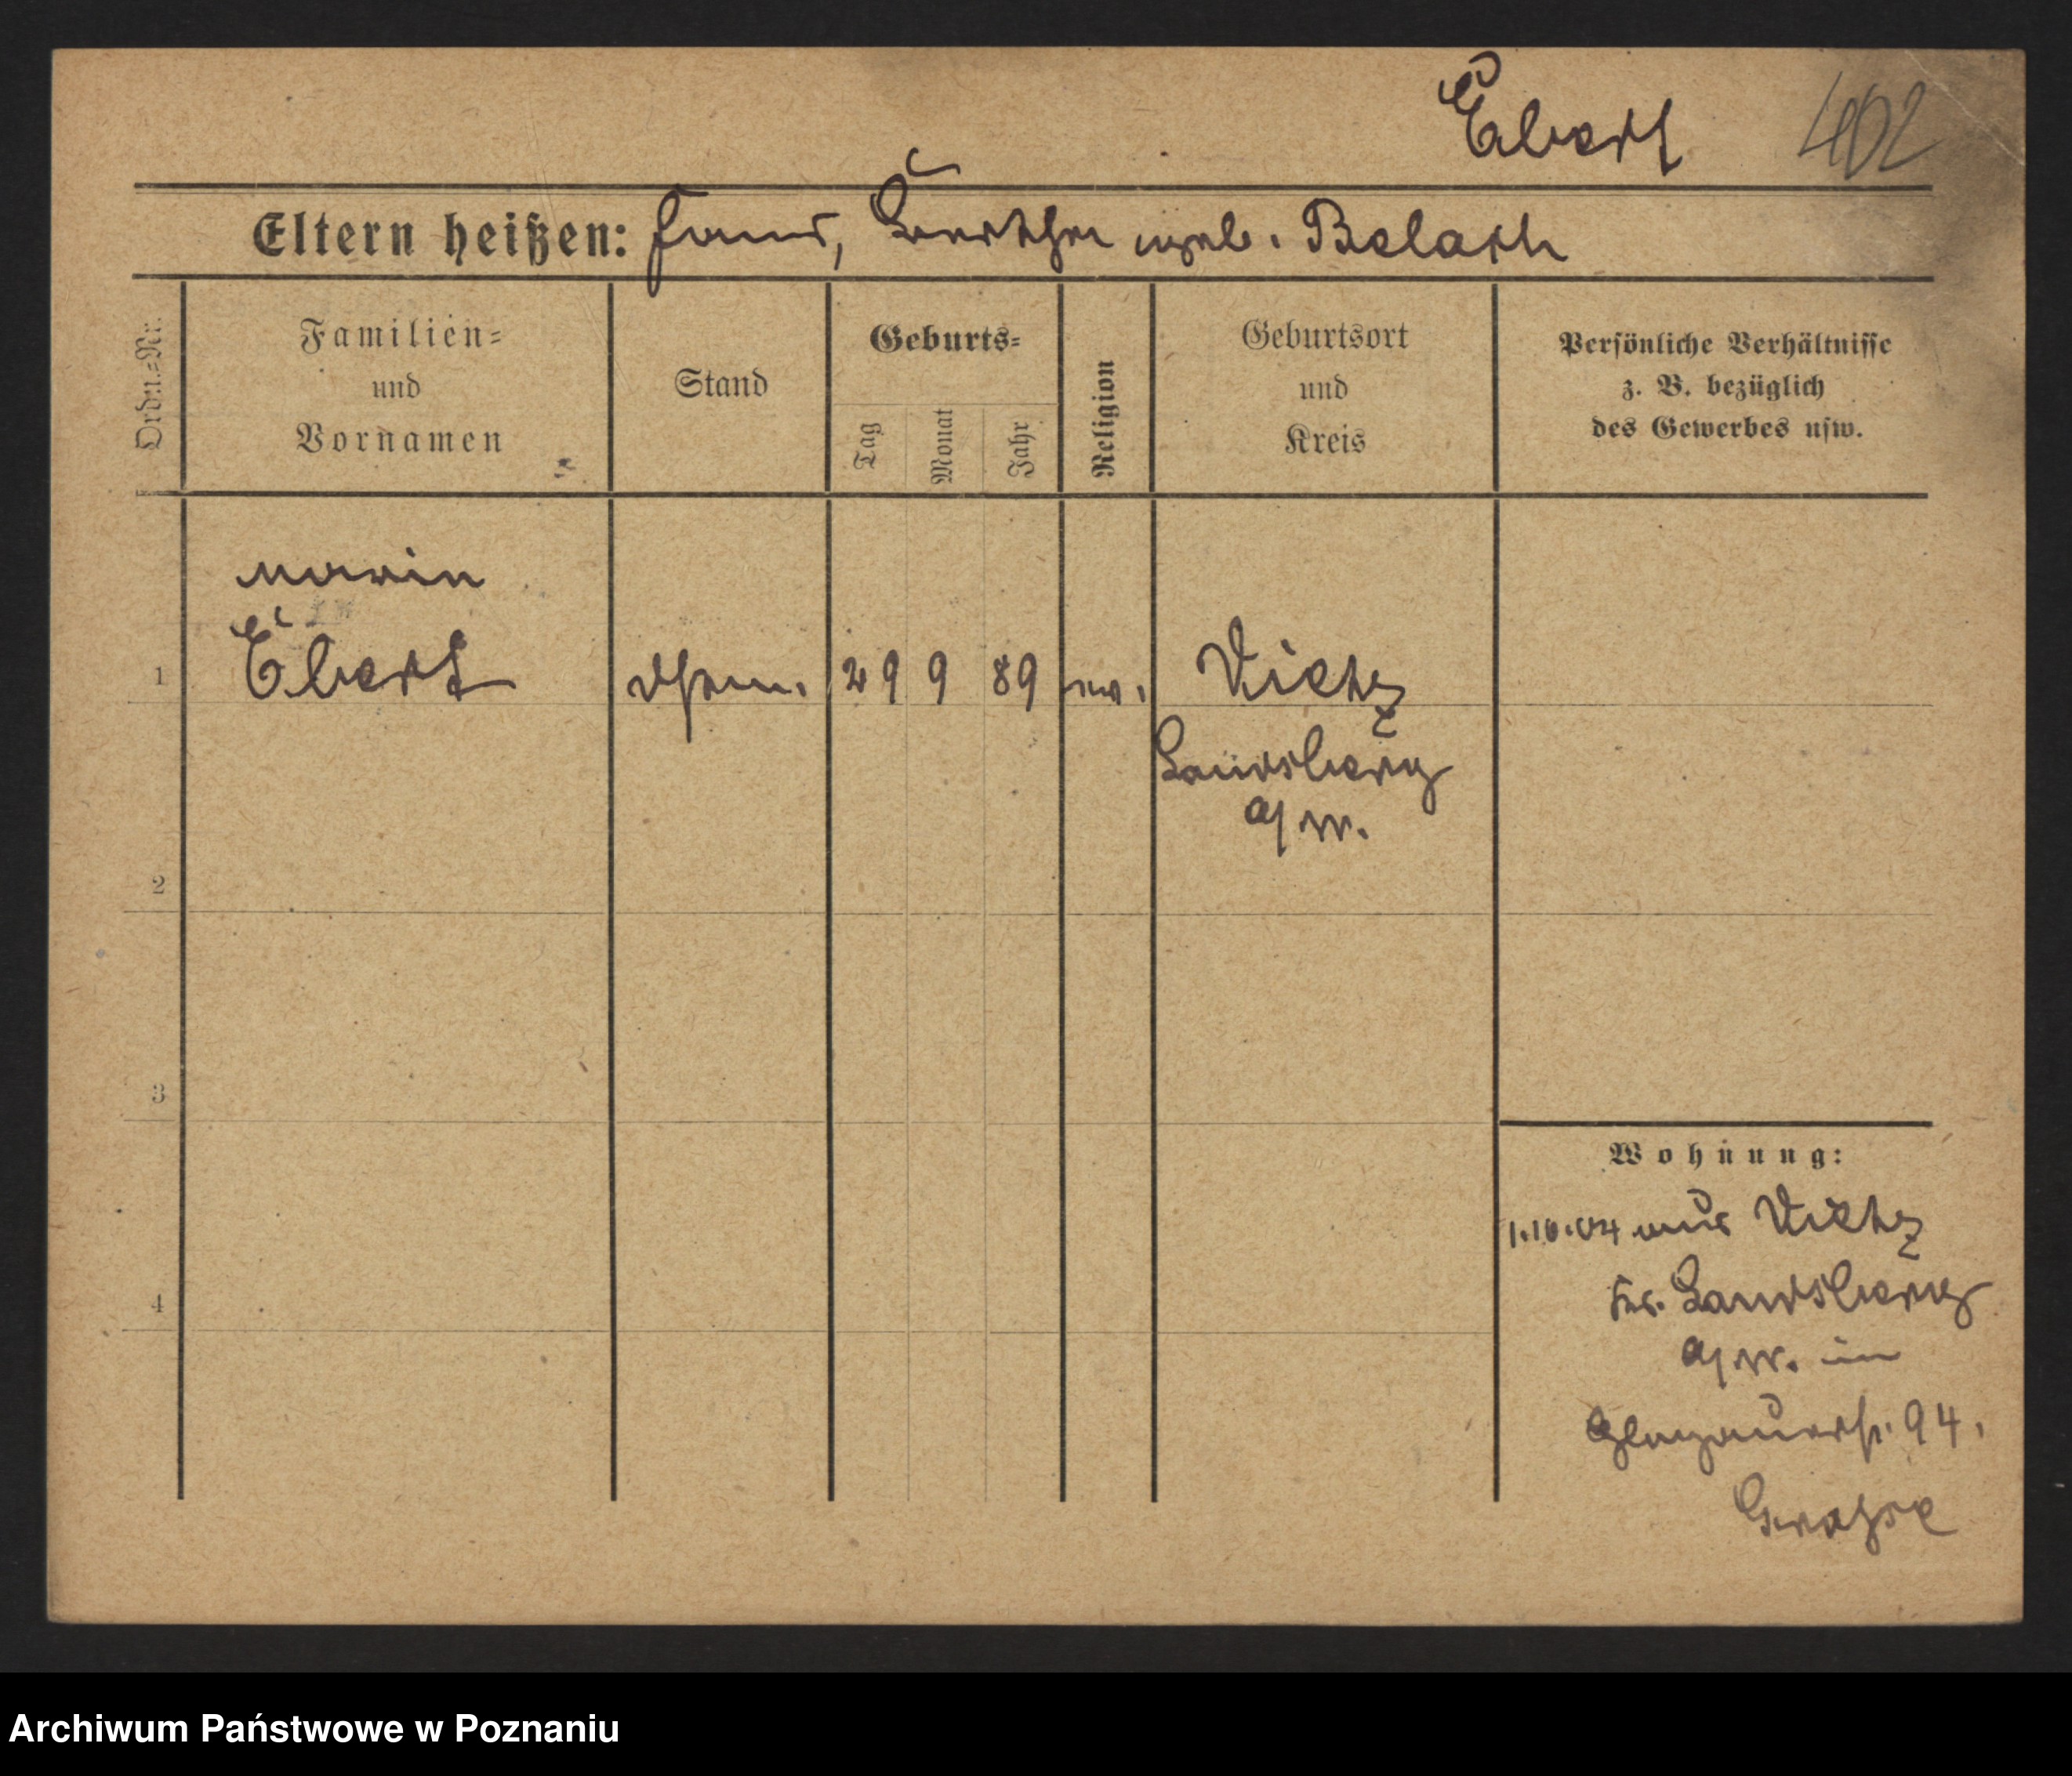 Ebert 402
Eltern heißen: geb. Belach
Ordn.-Nr.
Familien=
und
Vornamen
Stand
Geburts=
Tag
Monat
Jahr
Religion
Geburtsort
und
Kreis
Persönliche Verhältnisse
z. B. bezüglich
des Gewerbes usw.
1 Ebert 29 9 89 ev. Vietz
Landsberg
a/W.
2
3
4
Wohnung:
1.10.04 aus Vietz
Kr. Landsberg
a/W. in
Glogauerstr. 94.
Archiwum Państwowe w Poznaniu